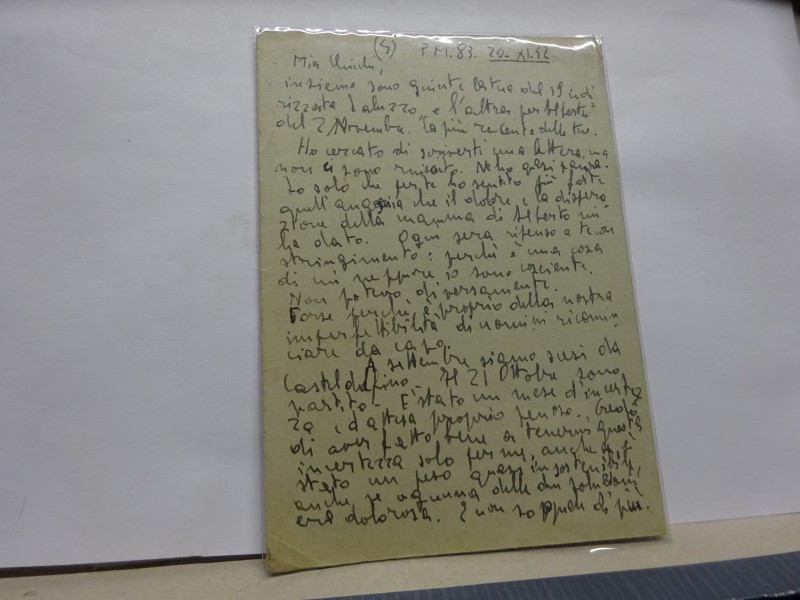 (4) P.M. 83. 20. XI. 42
Mia
insieme sono giunte la tua del 19 indi
rizzata Saluzzo e l'altra per Alberto
del 2 Novembre. La più recente delle tue.
Ho cercato di scriverti una lettera, ma
non ci sono riuscito. Ne ho quasi paura.
So solo che per te ho sentito più forte
quell'angoscia che il dolore e la dispera
zione della mamma di Alberto mi
ha dato. Ogni sera ripenso a te con
stringimento: perché è una cosa
di cui neppure io sono cosciente.
Non potevo, diversamente.
Forse perché è proprio della nostra
imperfettibilità di uomini ricomin
ciare da capo.
A settembre siamo scesi da
Casteldelfino. Il 21 Ottobre sono
partito. È stato un mese d'incertez
za, d'attesa proprio penosa. Credo
di aver fatto bene a tenermi questa
incertezza solo per me, anche se è
stato un peso quasi insostenibile,
anche se ognuna delle due soluzioni
era dolorosa. E non so quale di più.